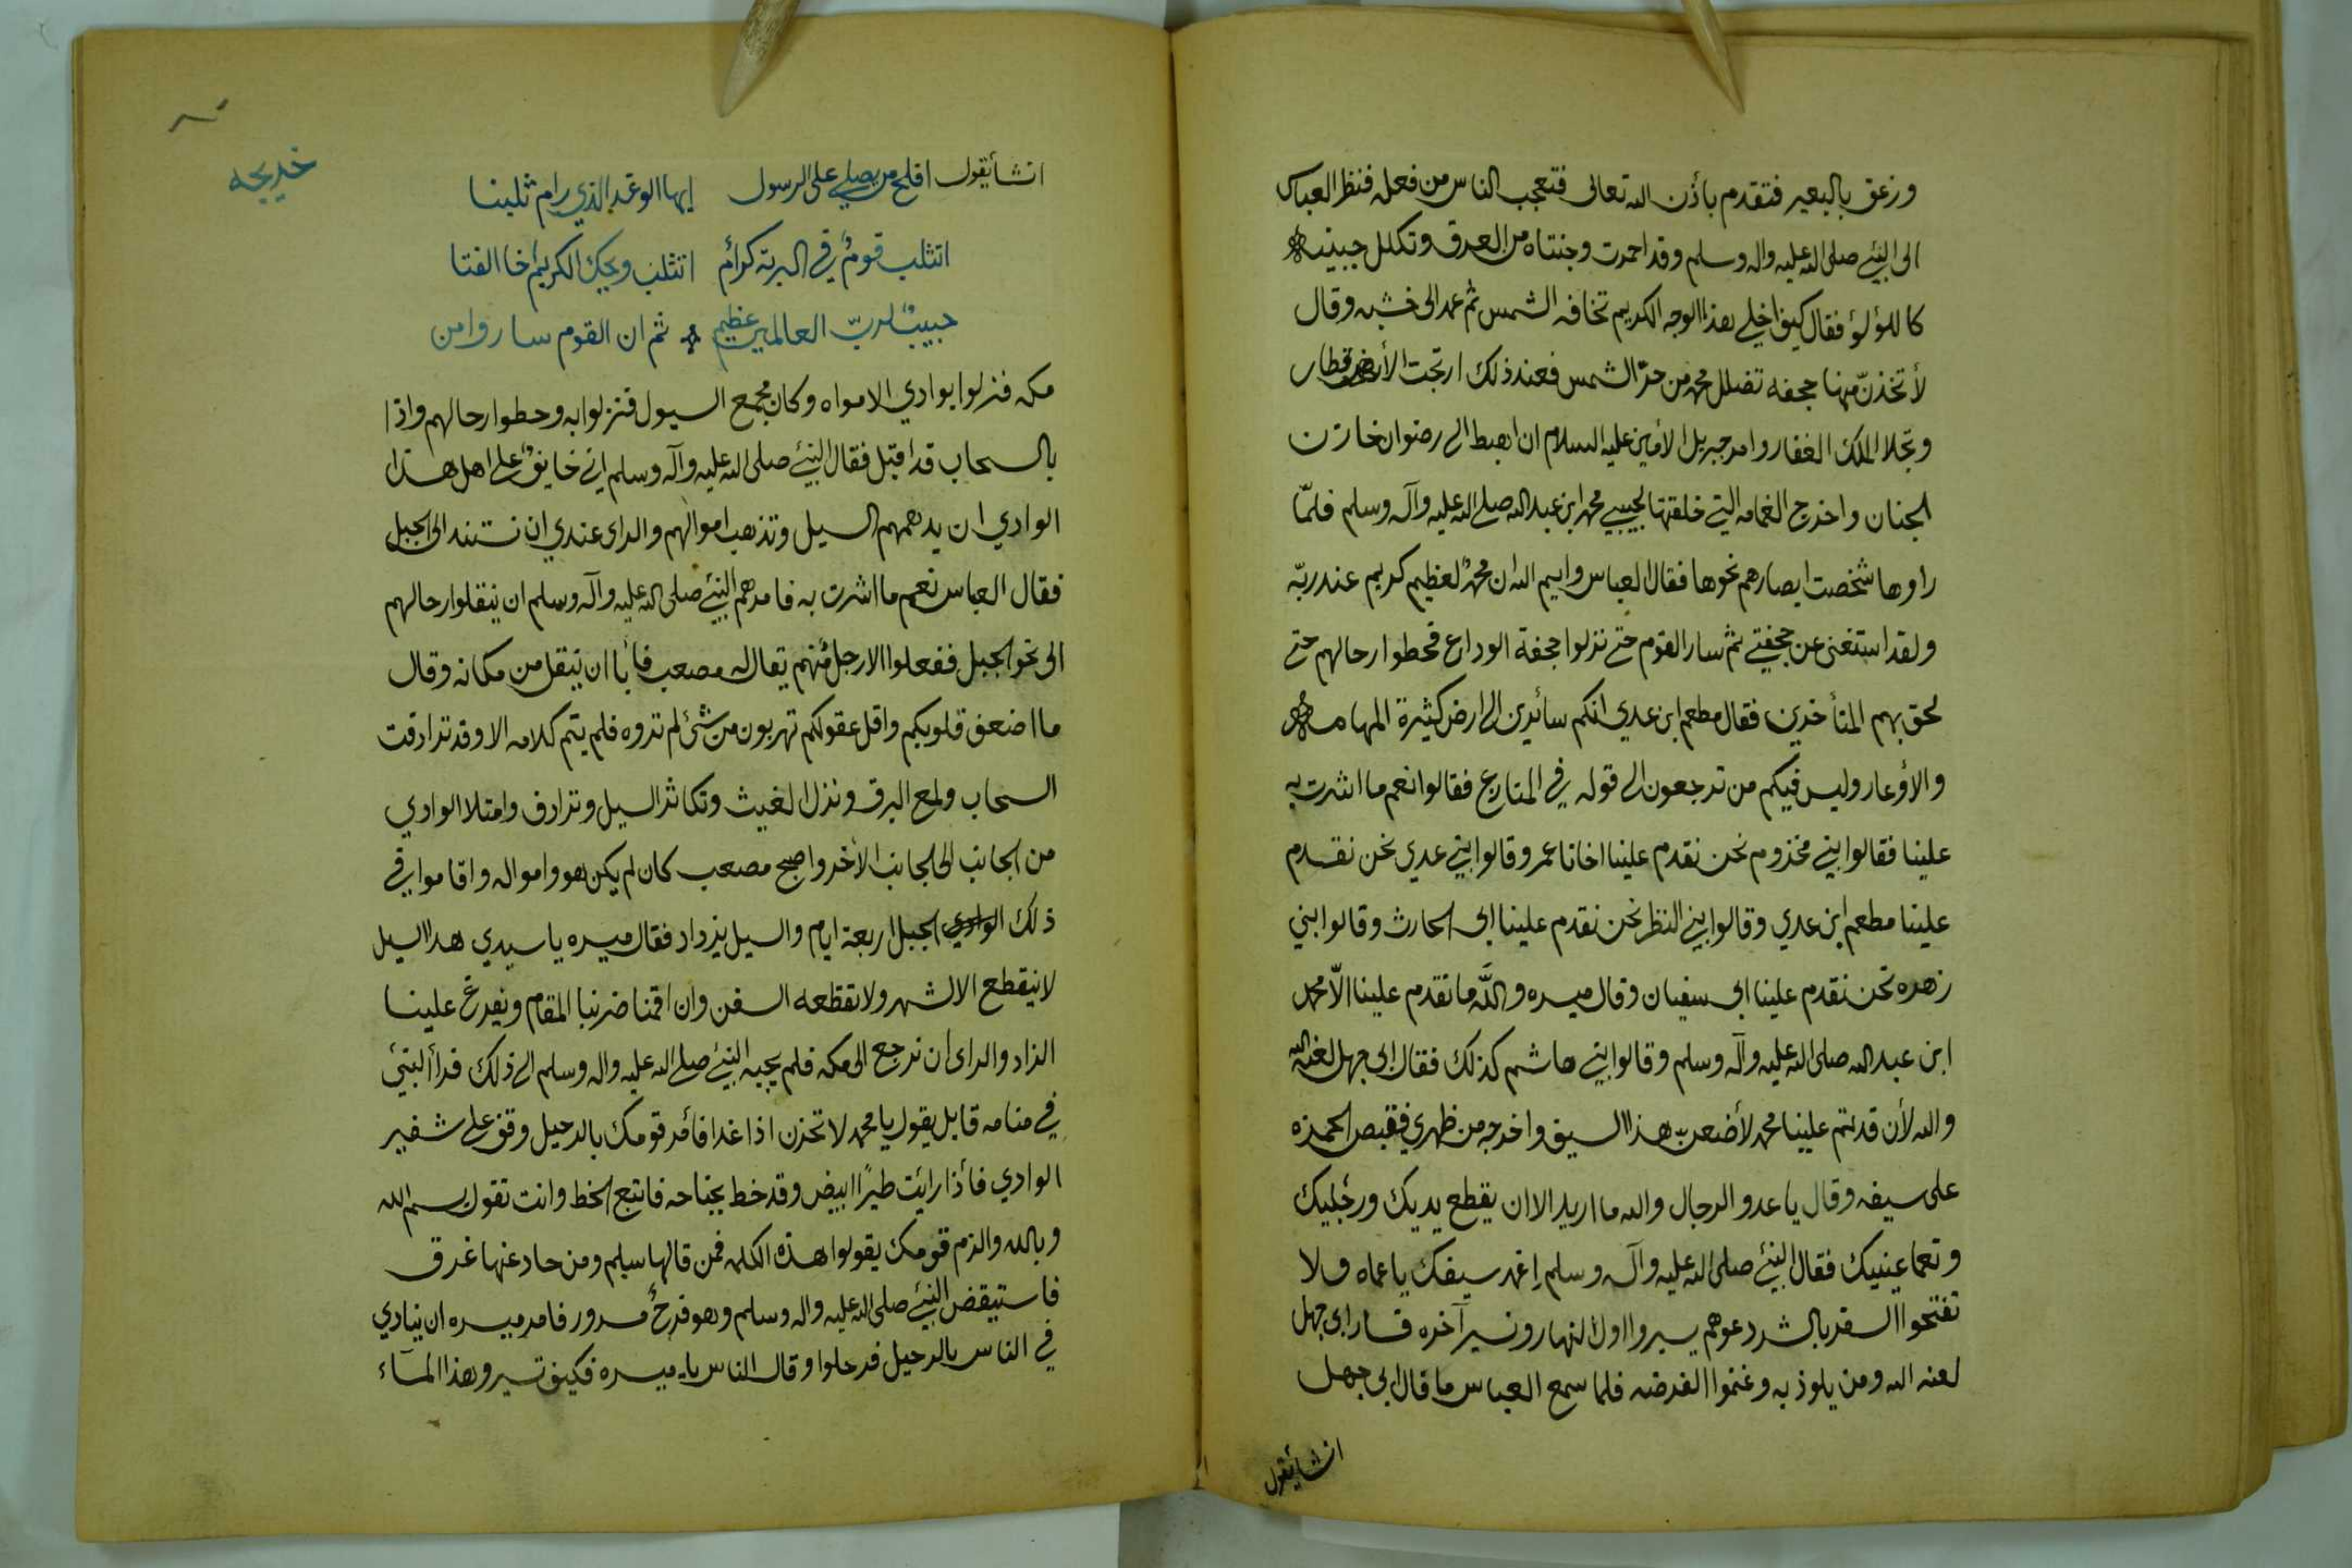 وزعق بالبعير فتقدم بأذن الله تعالى فتعجب الناس من فعله فنظر العباس
الى النبي صلى الله عليه واله وسلم وقد احمرت وجنتاه من العرق وتكلل جبينه
كاللؤلؤ فقال كيف اخلي هذا الوجه الكريم تخافه الشمس ثم عمد الى خشبه وقال
لأتخذنّ منها جحفه تضلل محمد من حرّ الشمس فعند ذلك ارتجت الأرض
وتجلا الملك الغفار وامر جبريل الأمين عليه السلام ان اهبط الى رضوان خازن
الجنان واخرج الغمامه التي خلقتها لحبيبي محمد ابن عبد الله صلى الله عليه وآله وسلم فلمّا
راوها شخصت ابصارهم نحوها فقال العباس وايم الله ان محمدٌ لعظيم كريم عند ربّه
ولقد استغنى عن جحفتي ثم سار القوم حتى نزلوا جحفة الوداع فحطوا رحالهم حتى
لحق بهم المتأخرين فقال مطعم ابن عدي انكم سائرين الى ارض كثيرة المهامه
والأوعار وليس فيكم من ترجعون الى قوله في المتارع فقالوا نعم ما اشرت به
علينا فقالوا بني مخزوم نحن نقدم علينا اخانا عمر وقالوا بني عدي نحن نقدم
علينا مطعم ابن عدي وقالوا بني النظر نحن نقدم علينا ابى الحارث وقالوا بني
زهره نحن نقدم علينا ابى سفيان وقال ميسره والله ما نقدم علينا الّا محمد
ابن عبد الله صلى الله عليه وآله وسلم وقالوا بني هاشم كذلك فقال ابى جهل لعنه الله
والله لأن قدمتم علينا محمد لأضعن هذا السيف واخرجه من ظهري فقبص الحمزه
على سيفه وقال يا عدو الرجال والله ما اريد الا ان يقطع يديك ورجليك
وتعما عينيك فقال النبي صلى الله عليه وآله وسلم إغمد سيفك يا عماه ولا
تفتحوا السفر بالشر دعوهم يسيروا اول النهار ونسير آخره فسار ابى جهل
لعنه الله ومن يلوذ به وغنموا الفرضه فلما سمع العباس ما قال ابى جهل
انشأ يقول
خديجه
انشأ يقول افلح من يصلي على الرسول ايها الوغد الذي رام ثلبنا
اتثلب قومٌ في البرية كرائم اتثلب ويحك الكريم اخا الفتا
حبيبٌ لربّ العالمين عظيم ثم ان القوم ساروا من
مكه فنزلوا بوادي الامواه وكان مجمع السيول فنزلوا به وحطوا رحالهم واذا
بالسحاب قد اقبل فقال النبي صلى الله عليه وآله وسلم اني خايفٌ على اهل هذا
الوادي ان يدهمهم السيل وتذهب اموالهم والراى عندي ان نستند الى الجبل
فقال العباس نعم ما اشرت به فامرهم النبي صلى الله عليه وآله وسلم ان ينقلوا رحالهم
الى نحو الجبل ففعلوا الا رجل منهم يقال له مصعب فأبا ان ينتقل من مكانه وقال
ما اضعف قلوبكم واقل عقولكم تهربون من شئ لم تروه فلم يتم كلامه الا وقد ترادفت
السحاب ولمع البرق ونزل الغيث وتكاثر السيل وترادف وامتلا الوادي
من الجانب الى الجانب الأخر واصبح مصعب كان لم يكن هو وامواله واقاموا في
ذلك الوادي الجبل اربعة ايام والسيل يزداد فقال ميسره يا سيدي هذا السيل
لا ينقطع الا لشهر ولا تقطعه السفن وان اقمنا ضر بنا المقام ويفرغ علينا
الزاد والراى ان نرجع الى مكه فلم يجيبه النبي صلى الله عليه واله وسلم الى ذلك فرأ النبي
في منامه قايل يقول يا محمد لا تحزن اذا غدا فأمر قومك بالرحيل وقف على شفير
الوادي فأذا رايت طيرًا ابيض وقد خط بجناحه فاتبع الخط وانت تقول بسم الله
وبالله والزم قومك يقولوا هذه الكلمه فمن قالها سلم ومن حاد عنها غرق
فاستيقض النبي صلى الله عليه واله وسلم وهو فرحٌ مسرور فامر ميسره ان ينادي
في الناس بالرحيل فرحلوا وقال الناس يا ميسره فكيف تسير وهذا المآء